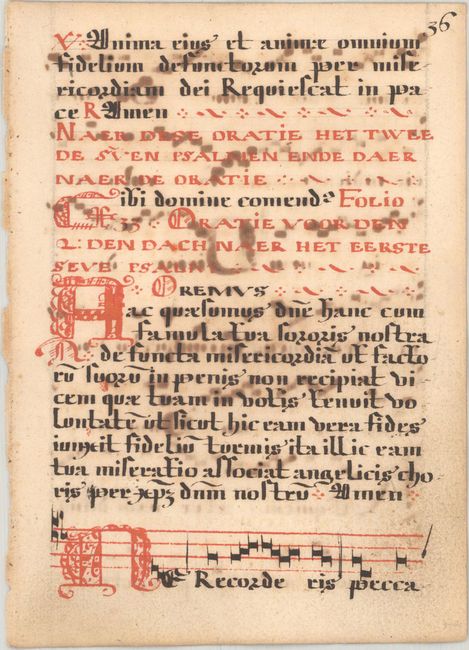 36
V Anima eius et animæ omnium
fidelium defunctorum per mise
ricordiam dei Requiescat in pa
ce R Amen
NAER DESE ORATIE HET TWEE
DE SŪEN PSALMEN ENDE DAER
NAER DE ORATIE
Tibi domine comend⁹ FOLIO
35 ORATIE VOOR DEN
2: DEN DACH NAER HET EERSTE
SEVE PSALM
OREMUS
Fac quæsumus dn̄e hanc cum
famula tua sororis nostra
N de functa misericordiā ut facto
rū suorū in penis non recipiat vi
cem quæ tuam in votis tenuit vo
luntatē ut sicut hic eam vera fides
iunxit fideliū turmis ita illic eam
tua miseratio associat angelicis cho
ris per xp̄ dn̄m nostrū Amen
NE Recorde ris pecca